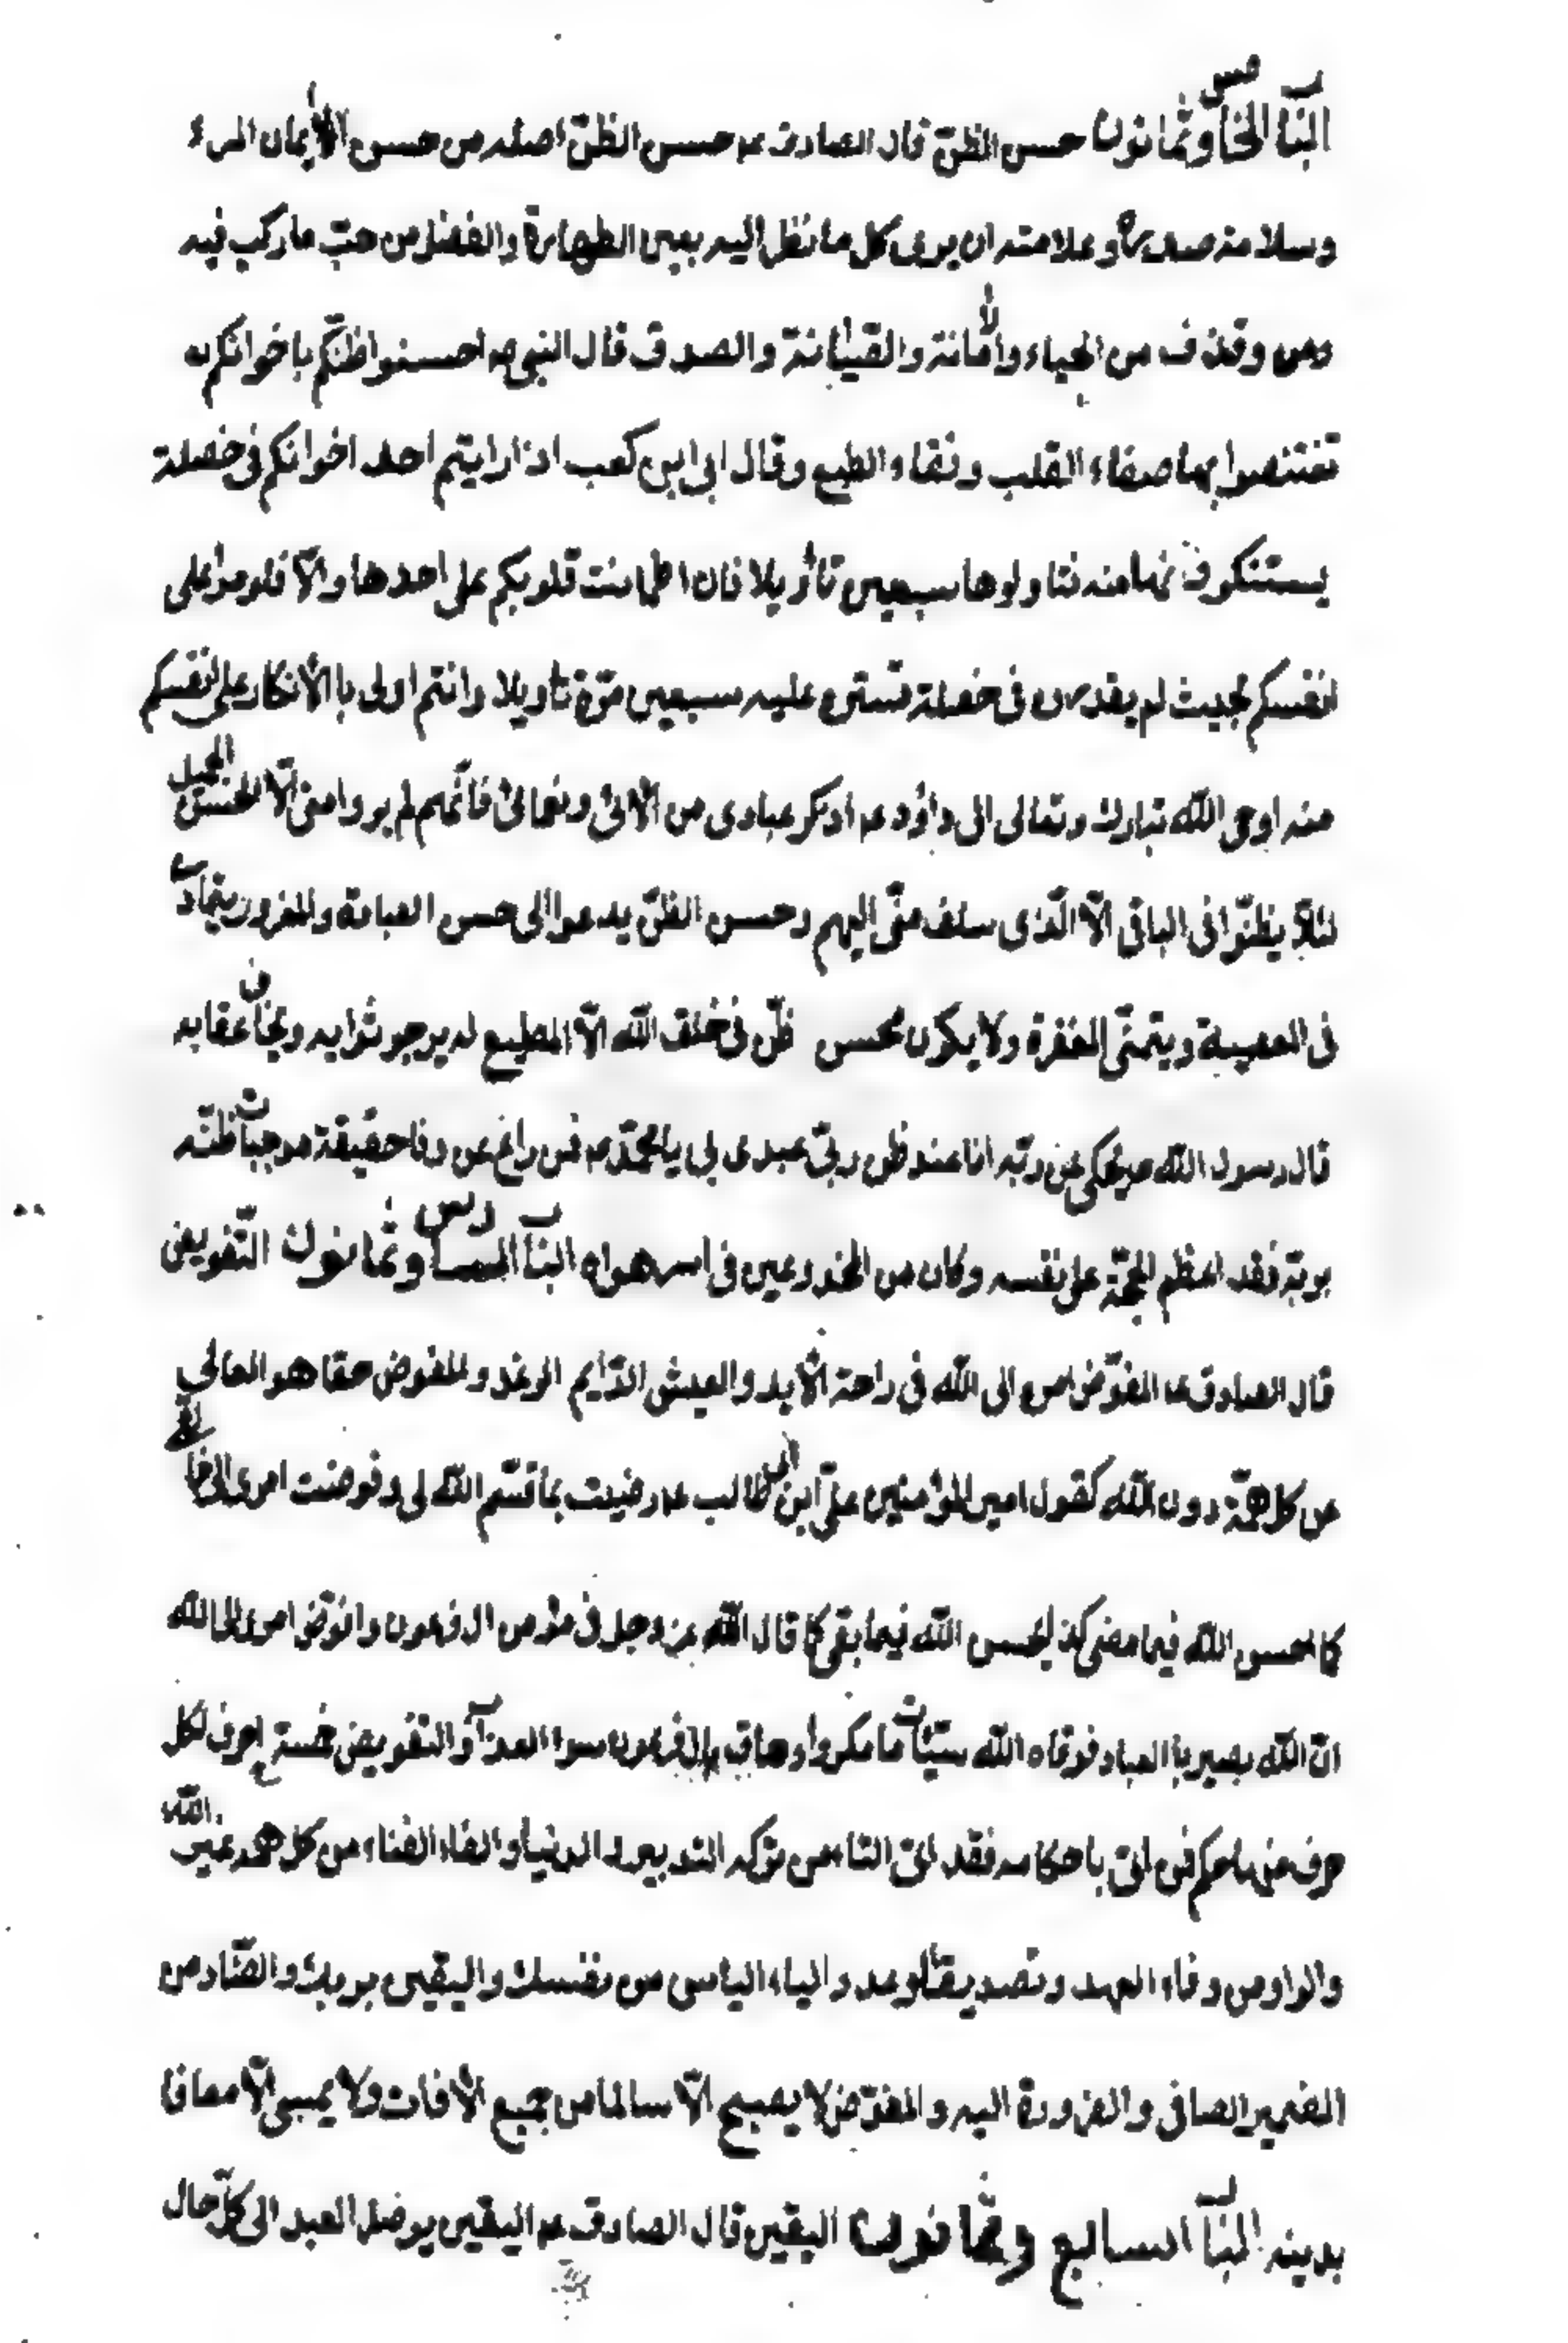 الباب الخامس وثمانون حسن الظنّ قال الصادق عم حسن الظنّ اصله من حسن الايمان المرء
وسلامة صدره وعلامته ان يرى كل ما نظر اليه بعين الطهارة والفضل من حيث ما ركب فيه
ومن وقذف من الحياء والامانة والصيانة والصدق قال النبي ص احسنوا ظنّكم باخوانكم
تغتنموا بها صفاء القلب ونقاء الطبع وقال ابى ابن كعب اذا رايتم احد اخوانكم فى خصلة
يستنكرونها منه فتاولوها سبعين تاويلا فان اطمانت قلوبكم على احدها والّا فلوموا على
انفسكم بحيث لم يقدرون فى خصلة تستر عليه سبعين مرّة تاويلا وانتم اولى با الانكار على انفسكم
منه اوحى اللّه تبارك وتعالى الى داؤد عم اذكر عبادى من الائى ونعمائى فانّهم لم يروا منى الّا الحسن الجميل
لئلّا يظنّوا فى الباقى الّا الّذى سلف منّى اليهم وحسن الظنّ يدعوا الى حسن العبادة والمغرور يتمادى
فى المعصية ويتمنّى المغفرة ولا يكون محسن ظنّ فى خلق اللّه الّا المطيع له يرجو ثوابه ويخاف عقابه
قال رسول اللّه ص يحكى عن ربّه انا عند ظن ربّى عبدى بى يا محمّد ص فمن زاغ عن وفا حقيقة موجبات ظنّه
بربّه فقد اعظم الحجّة على نفسه وكان من المخدوعين فى اسر هواه الباب السادس وثمانون التّفويض
قال الصادق عم المفوّض امره الى اللّه فى راحة الابد والعيش الدّايم الرغد والمفوض حقا هو العالى
عن كل همّة دون اللّه كقول امير المؤمنين علىّ ابن ابى طالب عم رضيت بما قسّم اللّه لى وفوضت امرى الى خالقى
كما احسن اللّه فيما مضى كذا يحسن اللّه فيما بقى كما قال اللّه عز وجل فى مؤمن ال فرعون وافوّض امرى الى اللّه
انّ اللّه بصير با العباد فوقاه اللّه سيّئات ما مكروا وحاق بال فرعون سوا العذاب والتفويض خمسة احرف لكل
حرف منها حكم فمن اتى باحكامه فقد اتى التاء من تركه التدبير الدنيا والفاء الفناء من كل همه غير اللّه
والواو من وفاء العهد وتصديق الوعد والياء الياس من نفسك واليقين بربك والضّاد من
الضمير الصافى والضرورة اليه والمفوّض لا يصبح الّا سالما من جميع الافات ولا يمسى الّا معافا
بدينه الباب السابع وثمانون اليقين قال الصادق عم اليقين يوصل العبد الى كلّ حال